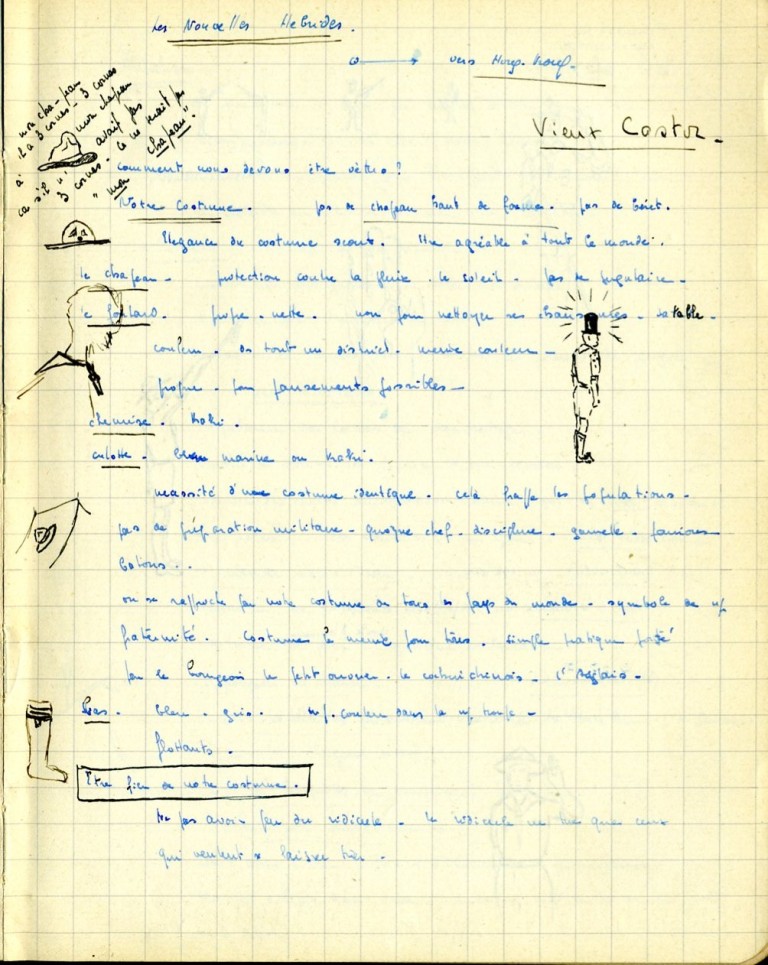 Les Nouvelles Hebrides.
vers Hong-Kong.
Vieux Castor.
mon cha-peau
il a 3 cornes - 3 cornes
à mon chapeau
ca s'il n'avait pas
3 cornes. ce ne serait pas
"mon chapeau".
comment nous devons être vêtus?
Notre Costume. pas de chapeau haut de forme. pas de béret.
Elégance du costume scout. Etre agréable à tout le monde.
le chapeau. protection contre la pluie. le soleil. pas de jugulaire.
le foulard. propre. nette. non pour nettoyer ses chaussures. sa table.
couleur. tout un district. même couleur.
propre. pour pansements possibles
chemise. Kaki.
culotte. bleu marine ou kaki.
nécessité d'une costume identique. celà frappe les populations.
pas de préparation militaire. quoique chef. discipline. gamelle. fanions
batons..
on se rapproche par notre costume de tous les pays du monde. symbole de n/
fraternité. Costume le meme pour tous. simple pratique porté
par le bourgeois le petit ouvrier. le cochinchinois. l'anglais.
Bas. bleu. gris. m/. couleur dans la m/ troupe
flottants.
Etre fier de notre costume.
Ne pas avoir peur du ridicule. le ridicule ne tue que ceux
qui veulent se laisser tuer.